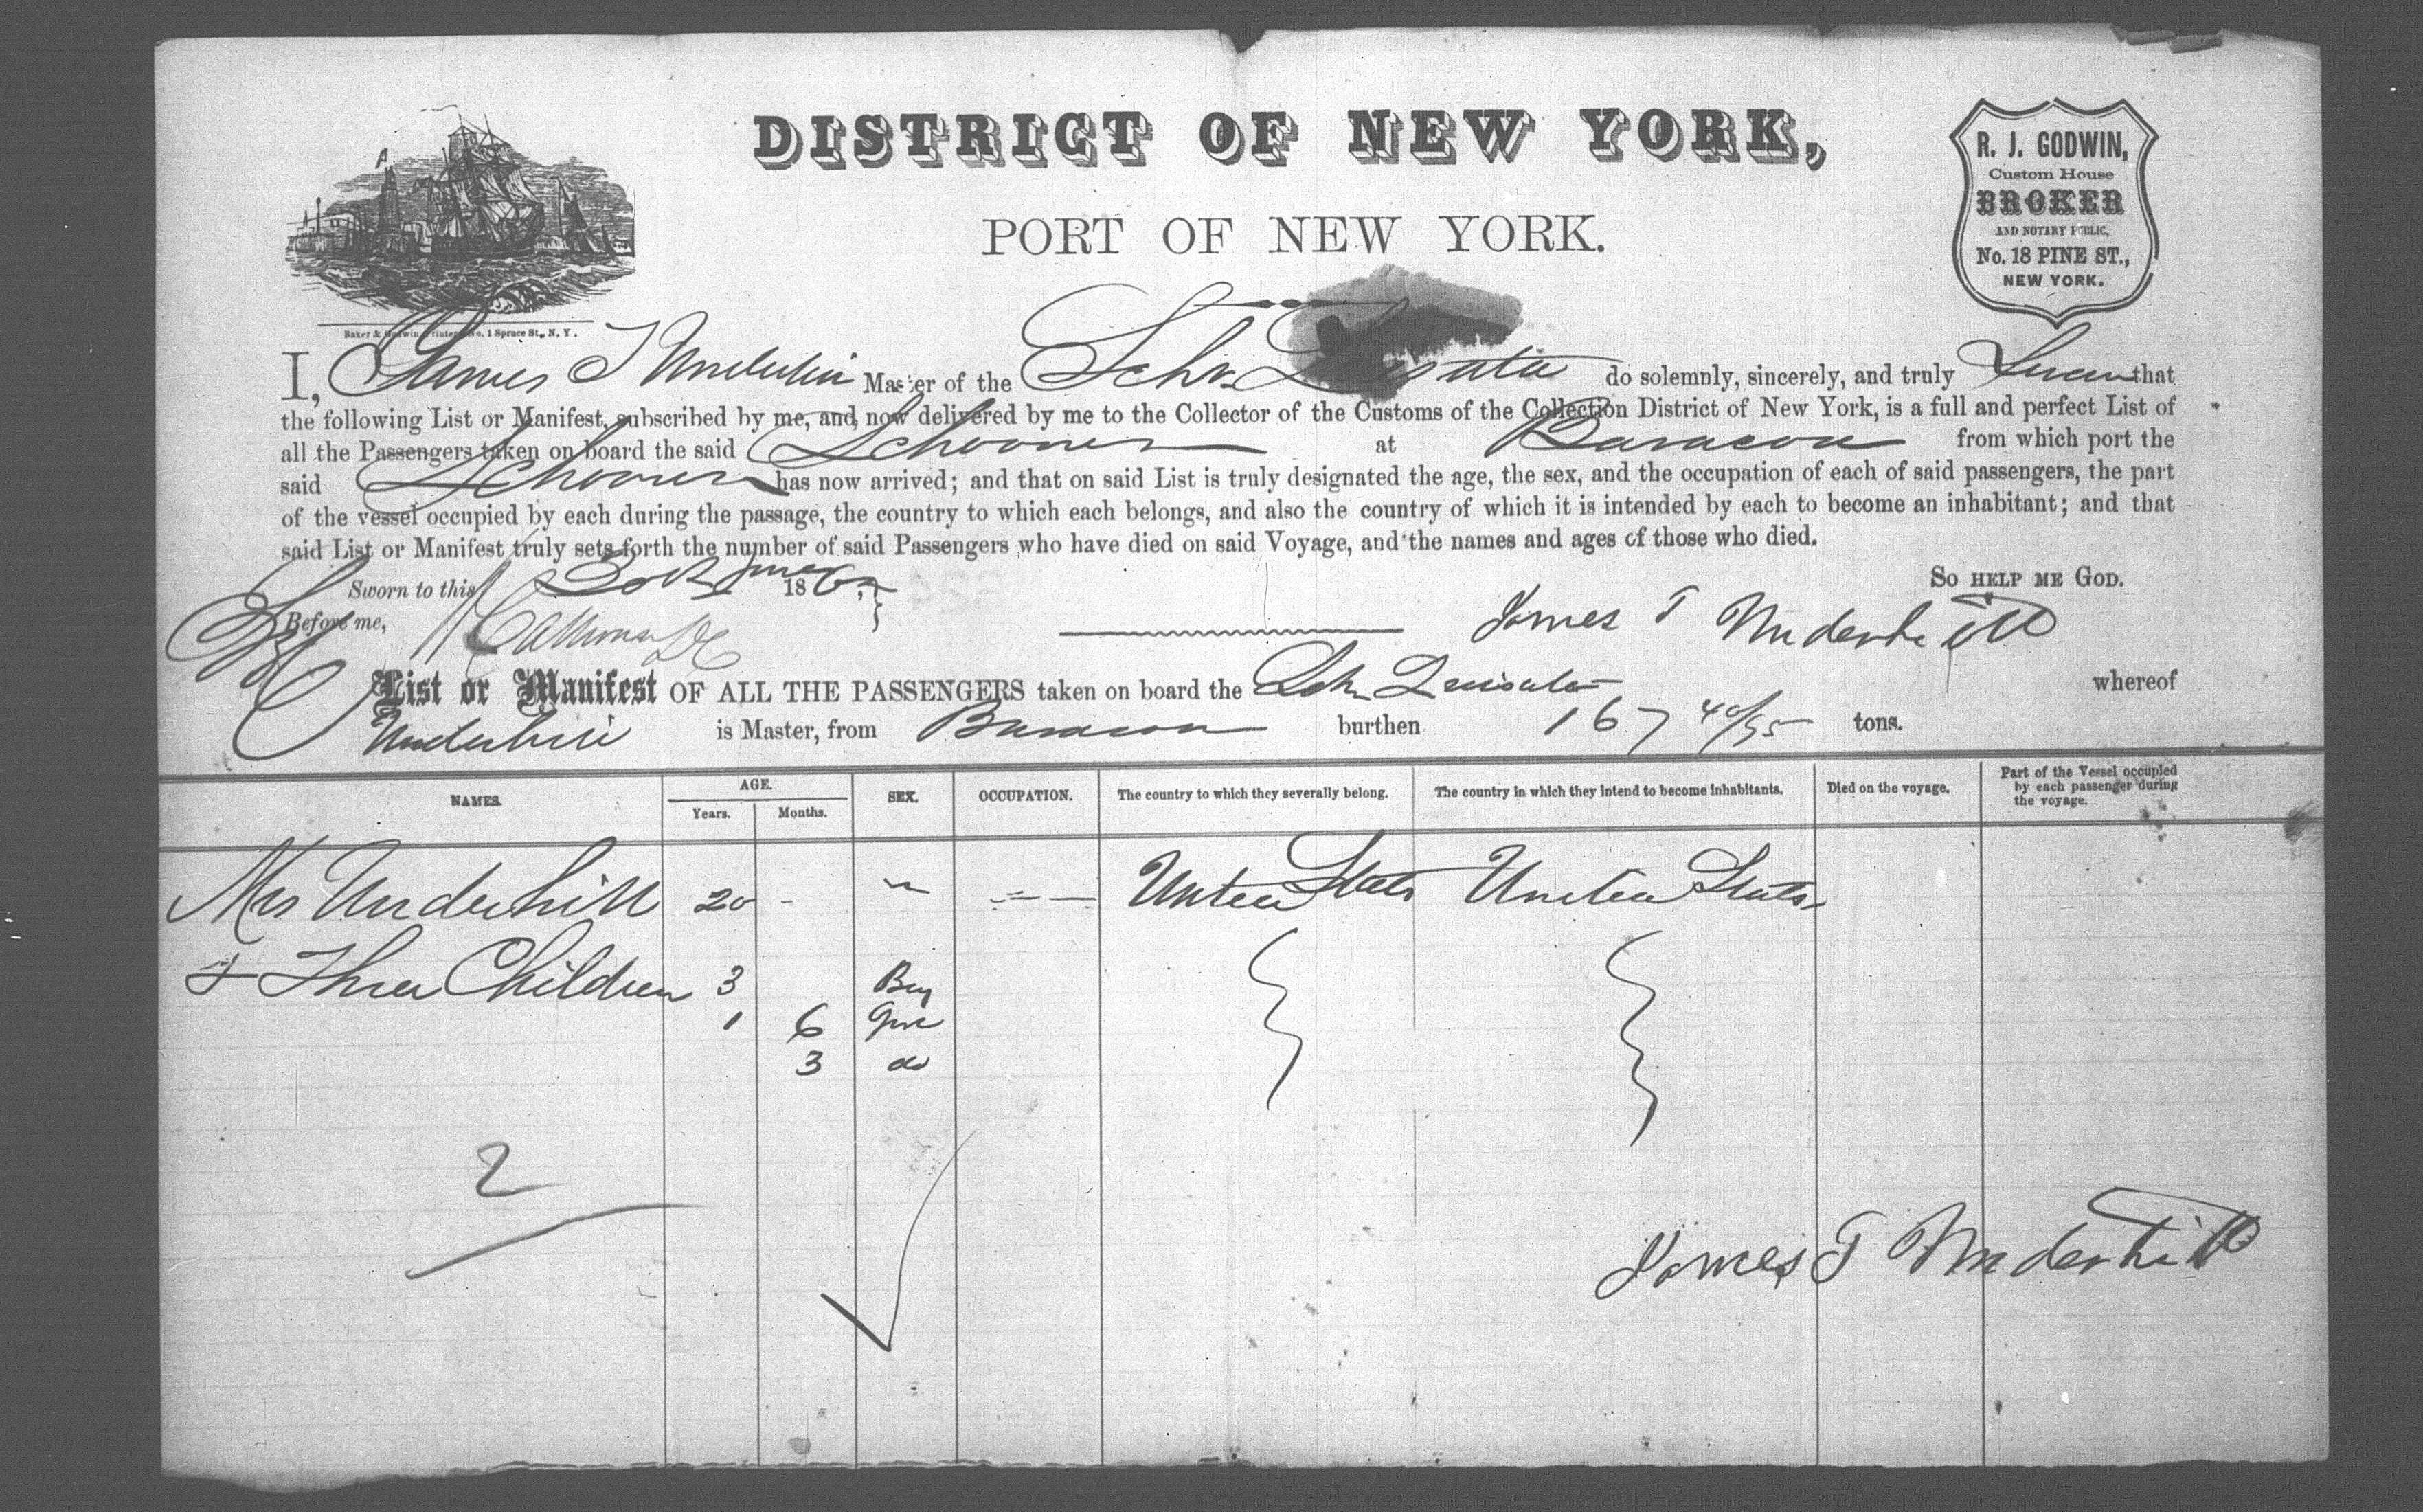 DISTRICT OF NEW YORK,
PORT OF NEW YORK.
R. J. GODWIN,
Custom House
BROKER
AND NOTARY PUBLIC,
No. 18 PINE ST.,
NEW YORK.
Baker & Godwin, Printers, No. 1 Spruce St., N. Y.
I, James T Underhill Master of the Schr. do solemnly, sincerely, and truly Swear that
the following List or Manifest, subscribed by me, and now delivered by me to the Collector of the Customs of the Collection District of New York, is a full and perfect List of
all the Passengers taken on board the said Schooner at Baracoa from which port the
said Schooner has now arrived; and that on said List is truly designated the age, the sex, and the occupation of each of said passengers, the part
of the vessel occupied by each during the passage, the country to which each belongs, and also the country of which it is intended by each to become an inhabitant; and that
said List or Manifest truly sets forth the number of said Passengers who have died on said Voyage, and the names and ages of those who died.
Sworn to this 186 So help me God.
Before me, James T Underhill
List or Manifest OF ALL THE PASSENGERS taken on board the Schr whereof
Underhill is Master, from Baracoa burthen 167 40/95 tons.
NAMES. AGE. SEX. OCCUPATION. The country to which they severally belong. The country in which they intend to become inhabitants. Died on the voyage. Part of the Vessel occupied by each passenger during the voyage.
Years. Months.
Mrs Underhill 20 - United States United States
& Three Children 3 Boy
1 6 Girl
3 do
2
James T Underhill